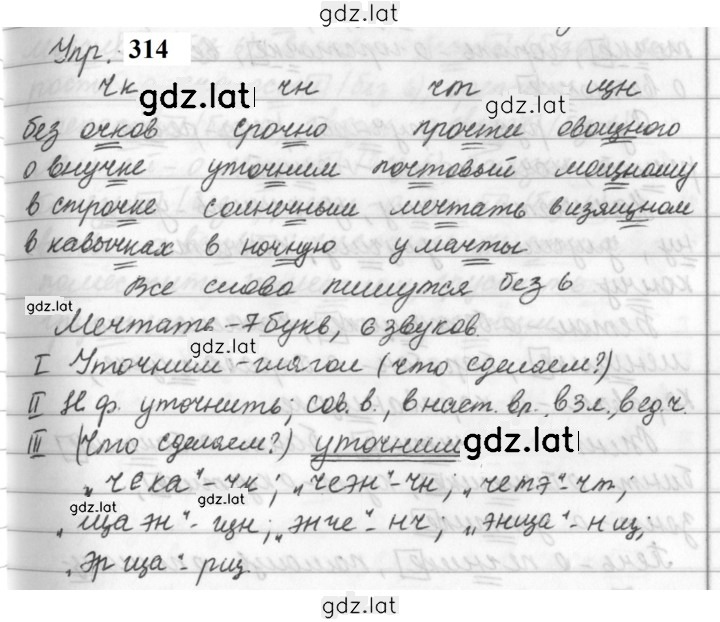 gdz.lat
Упр. 314
чк чн чт щн
gdz.lat gdz.lat
без очков срочно прочти овощного
о внучке уточним почтовый мощному
в строчке солнечным мечтать в изящном
в кавычках в ночную у мачты
Все слова пишутся без ь
gdz.lat
Мечтать - 7 букв, 6 звуков
gdz.lat
I Уточним - глагол (что сделаем?)
II Н.ф. уточнить; сов. в., в наст. вр., в 3 л., в ед. ч.
III (Что сделаем?) уточним gdz.lat
„чека“ - чк; „чеэн“ - чн; „четэ“ - чт;
gdz.lat gdz.lat
„ща эн“ - щн; „энче“ - нч; „энща“ - нщ;
„эр ща“ - рщ.
gdz.lat